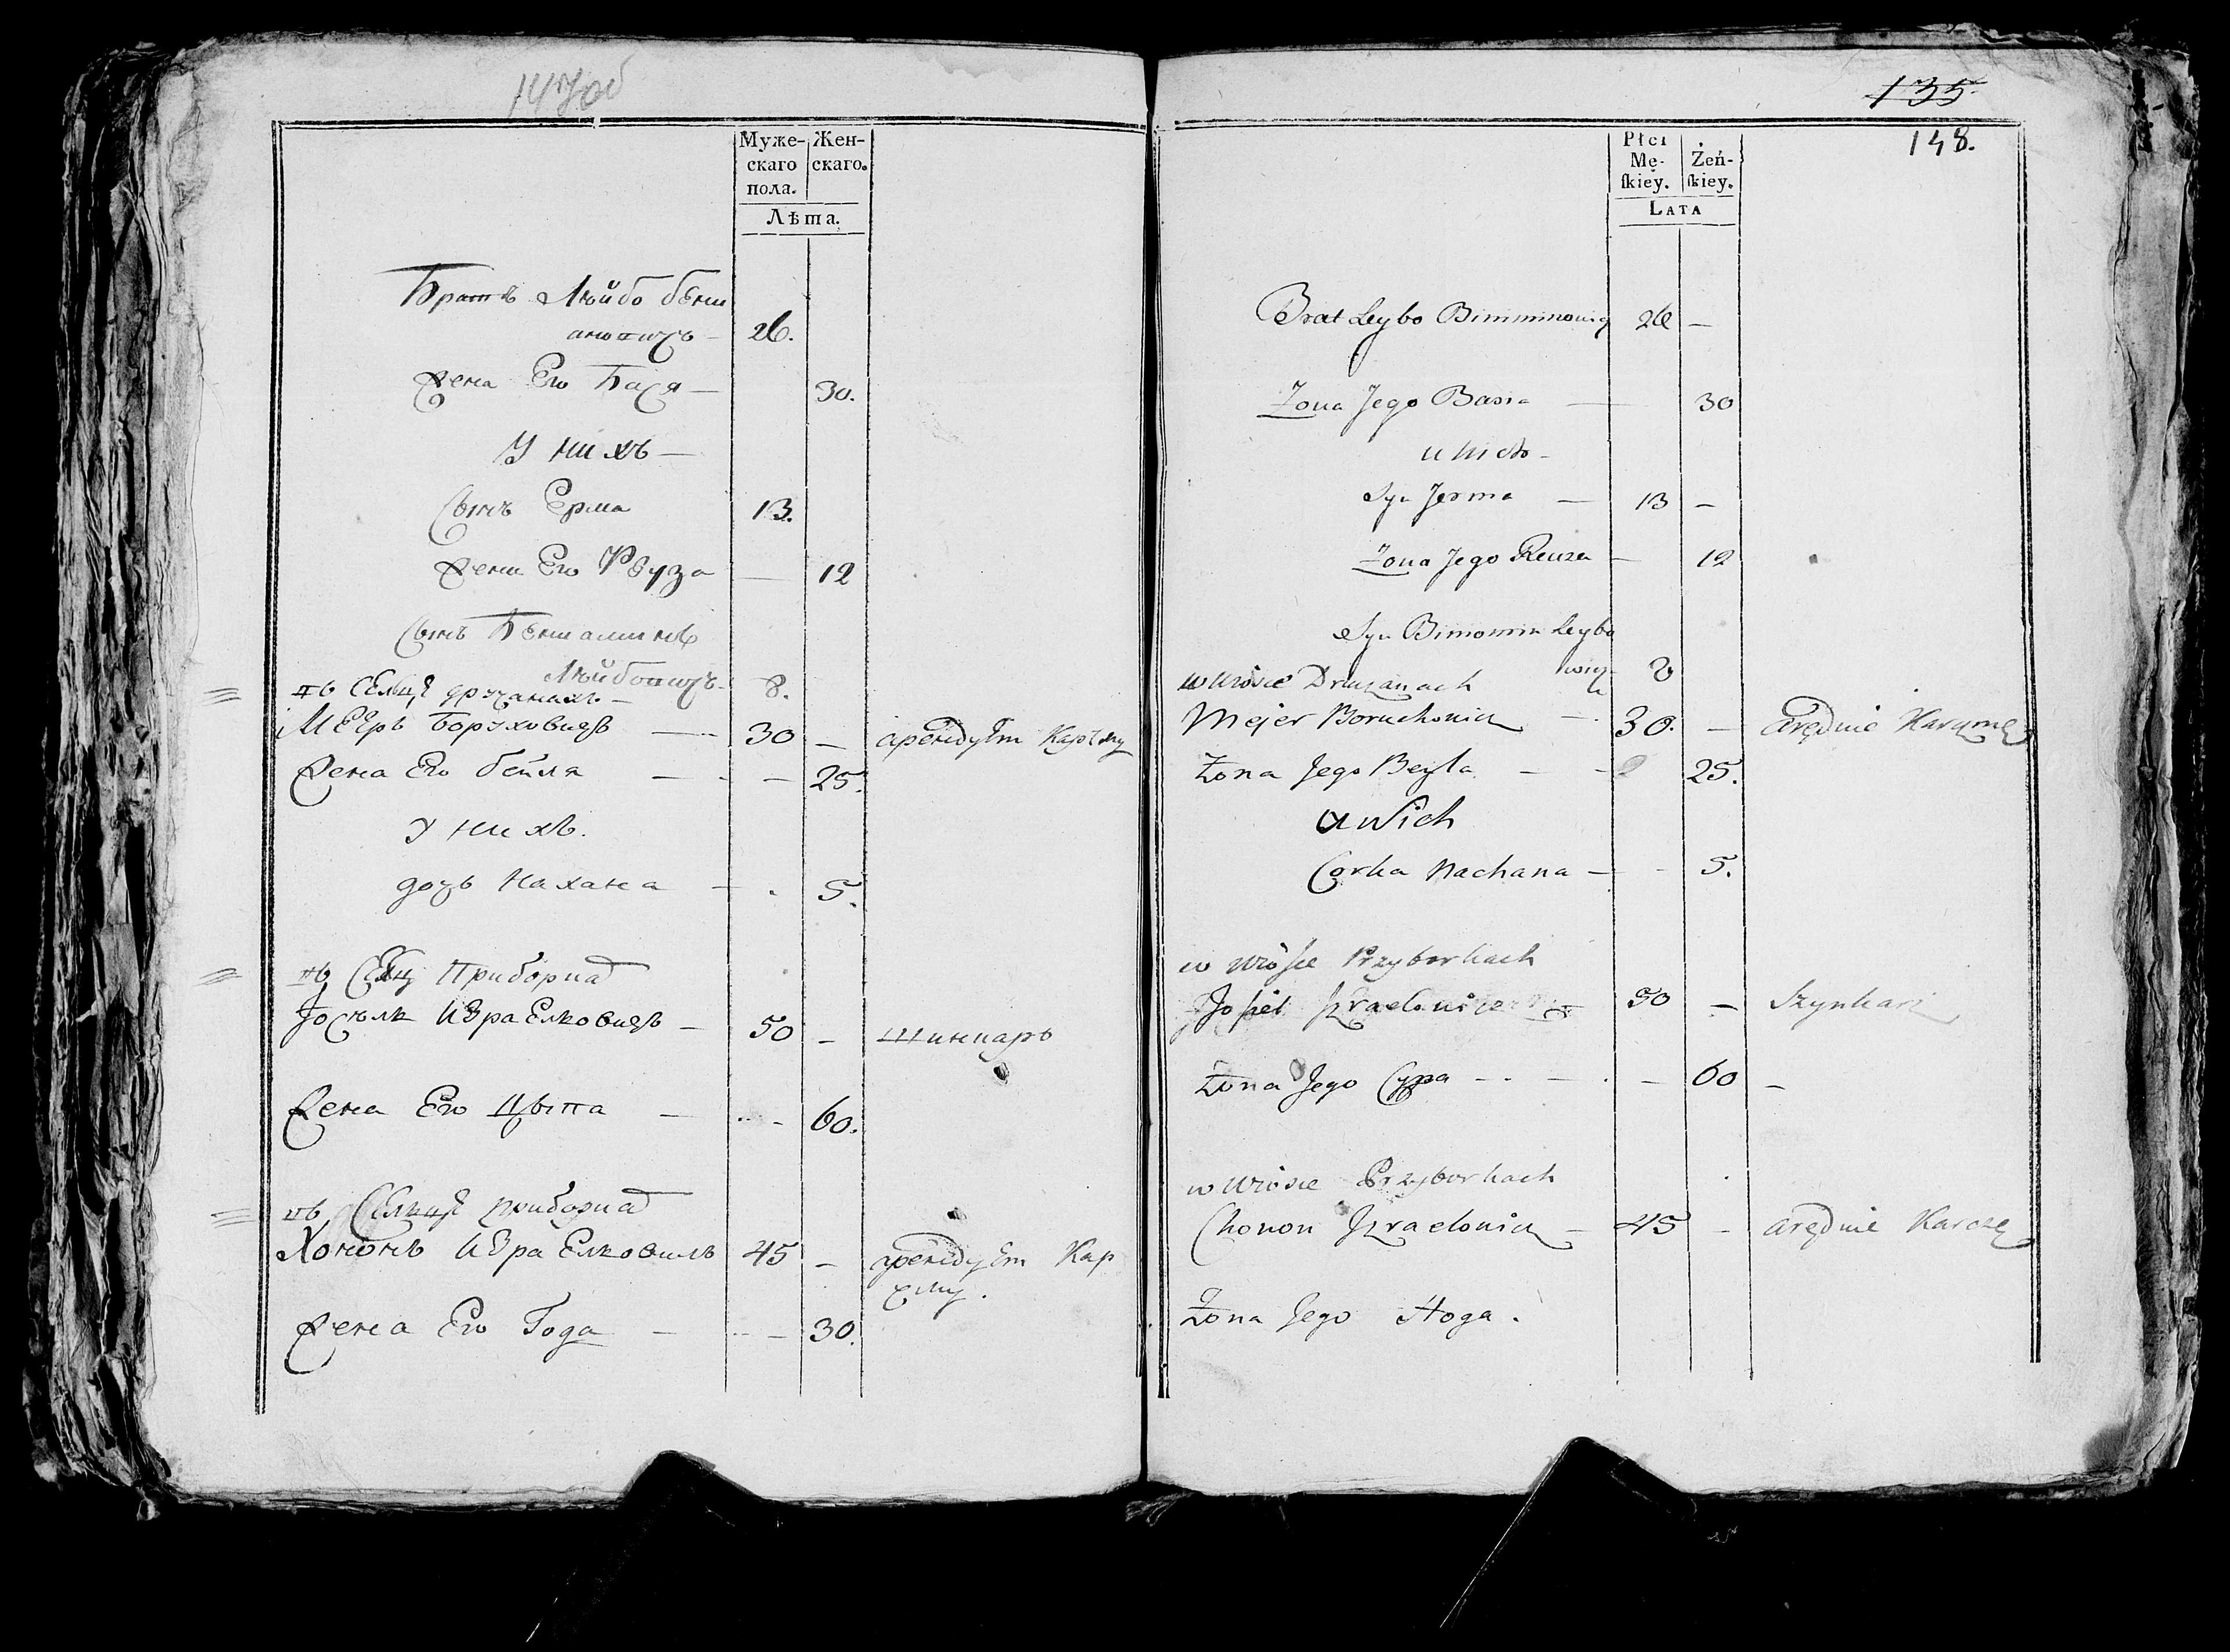 147об
Муже-
скаго
пола.
Жен-
скаго.
Лѣта.
Братъ Лѣйбо бени
26.
Жена Его Бася — 30.
У нихъ —
Сынъ Ерма 13.
Жена Его Реуза — 12
Сынъ Бениаминъ
Лѣйбовичъ 8.
въ Селцѣ дручанахъ —
Мееръ Боруховичъ — 30 — арендуетъ Карчму
Жена Его бейля — 25.
У нихъ.
дочь Нахана — 5.
въ Приборкад
Іосѣлъ Израелковичъ — 50 — Шинкаръ
Жена Его Цыпа — 60.
въ Селцѣ приборкад
Хононъ Израелковичъ 45 — арендуетъ Кар
чму.
Жена Его Года — 30.
135
148.
Płci
Mę-
ſkiey.
Żeń-
ſkiey.
LATA
Brat Leybo 26 —
Żona Jego Basia — 30
u nich —
Syn Jerma — 13 —
Żona Jego Reuza — 12
Syn Leybo
wicz 8
w wiosce Druzanach
Mejer Boruchowicz — 30. — arędnie Karczmę
Żona Jego Beyla — 25.
U Nich
Corka Nachana — 5.
w wiosce Przyborkach
Josiel Izraelowicz 50 — Szynkarz
Żona Jego Сура — 60 —
w wiosce Przyborkach
Chonon Izraelowicz — 45 — arędnie Karczę
Żona Jego Hoga.